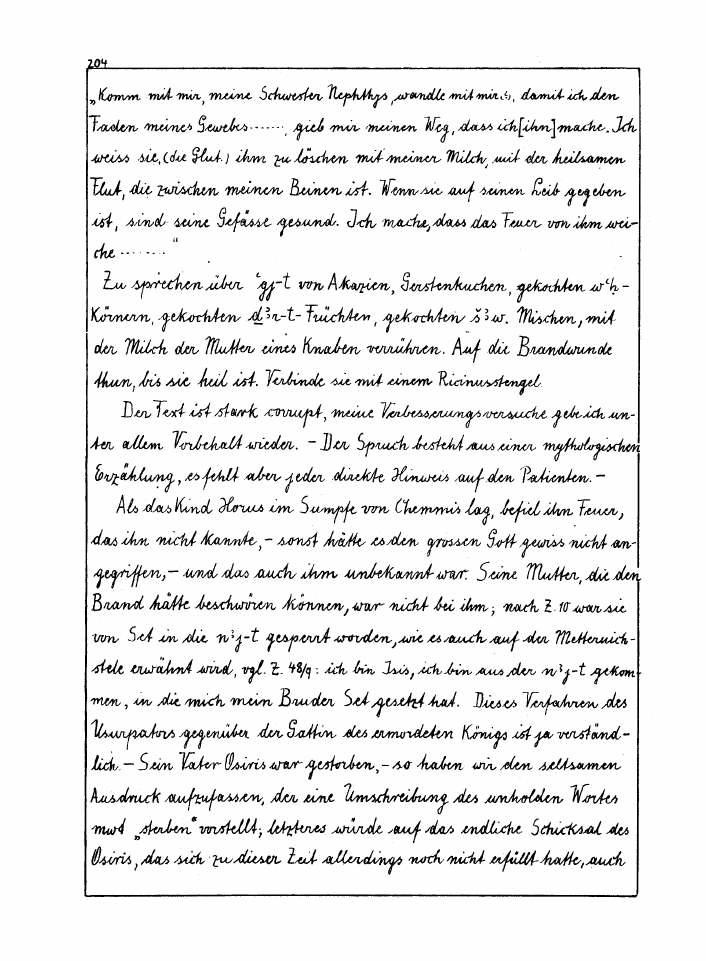 204
„Komm mit mir, meine Schwester Nephthys, wandle mit mir(?), damit ich den
Faden meines Gewebes ······· gieb mir meinen Weg, dass ich [ihn] mache. Ich
weiss sie, (die Glut) ihm zu löschen mit meiner Milch, mit der heilsamen
Flut, die zwischen meinen Beinen ist. Wenn sie auf seinen Leib gegeben
ist, sind seine Gefässe gesund. Ich mache, dass das Feuer von ihm wei-
che ······· “
Zu sprechen über ꜥgj-t von Akazien, Gerstenkuchen, gekochten wꜥḥ-
Körnern, gekochten ḏꜣr-t-Früchten, gekochten šꜣw. Mischen, mit
der Milch der Mutter eines Knaben verrühren. Auf die Brandwunde
thun, bis sie heil ist. Verbinde sie mit einem Ricinusstengel.
Der Text ist stark corrupt, meine Verbesserungsversuche gebe ich un-
ter allem Vorbehalt wieder. – Der Spruch besteht aus einer mythologischen
Erzählung, es fehlt aber jeder direkte Hinweis auf den Patienten. –
Als das Kind Horus im Sumpfe von Chemmis lag, befiel ihn Feuer,
das ihn nicht kannte, – sonst hätte es den grossen Gott gewiss nicht an-
gegriffen, – und das auch ihm unbekannt war. Seine Mutter, die den
Brand hätte beschwören können, war nicht bei ihm; nach Z. 10 war sie
von Set in die nꜣj-t gesperrt worden, wie es auch auf der Metternich-
stele erwähnt wird, vgl. Z. 48/9: ich bin Isis, ich bin aus der nꜣj-t gekom-
men, in die mich mein Bruder Set gesetzt hat. Dieses Verfahren des
Usurpators gegenüber der Gattin des ermordeten Königs ist ja verständ-
lich. – Sein Vater Osiris war gestorben, – so haben wir den seltsamen
Ausdruck aufzufassen, der eine Umschreibung des unholden Wortes
mwt „sterben“ vorstellt; letzteres würde auf das endliche Schicksal des
Osiris, das sich zu dieser Zeit allerdings noch nicht erfüllt hatte, auch